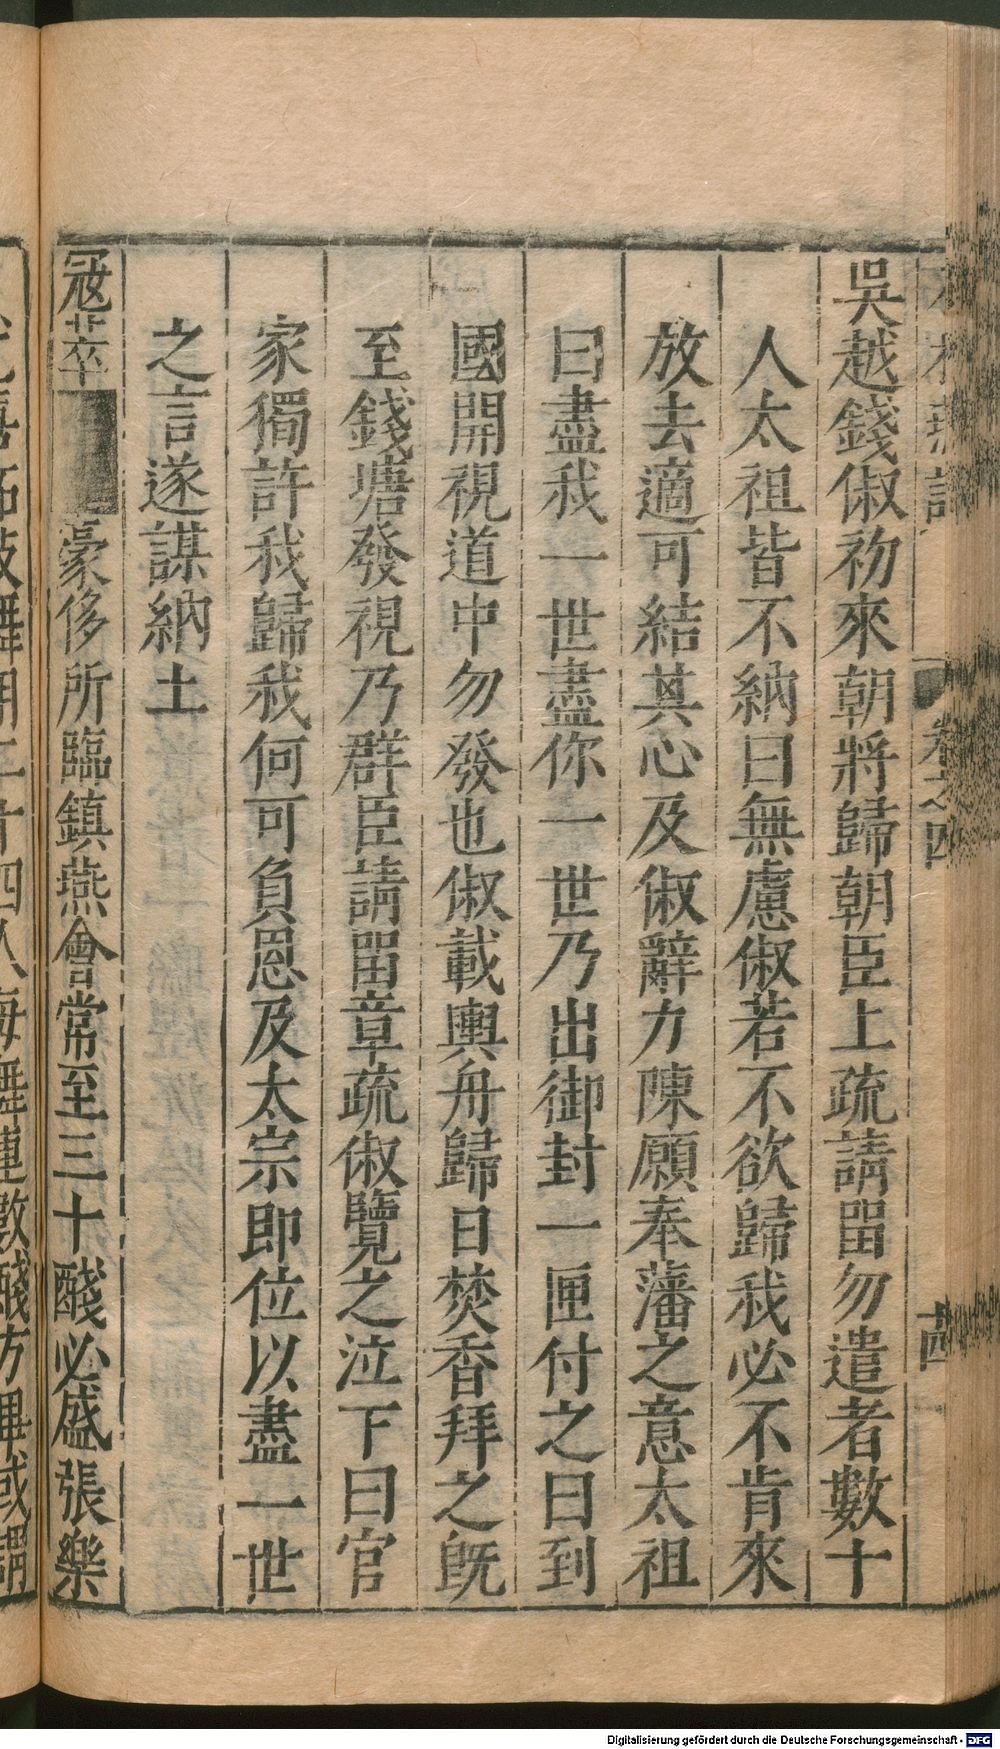 吳越錢俶初來朝將歸朝臣上疏請畱勿遣者數十
人太祖皆不納曰無慮俶若不欲歸我必不肯來
放去適可結其心及俶辭力陳願奉藩之意太祖
曰盡我一世盡你一世乃出御封一匣付之曰到
國開視道中勿發也俶載輿舟歸日焚香拜之旣
至錢塘發視乃群臣請畱章疏俶覽之泣下曰官
家獨許我歸我何可負恩及太宗即位以盡一世
之言遂謀納土
豪侈所臨鎮燕會常至三十醆必盛張樂
卷之四
十四
Digitalisierung gefördert durch die Deutsche Forschungsgemeinschaft - DFG